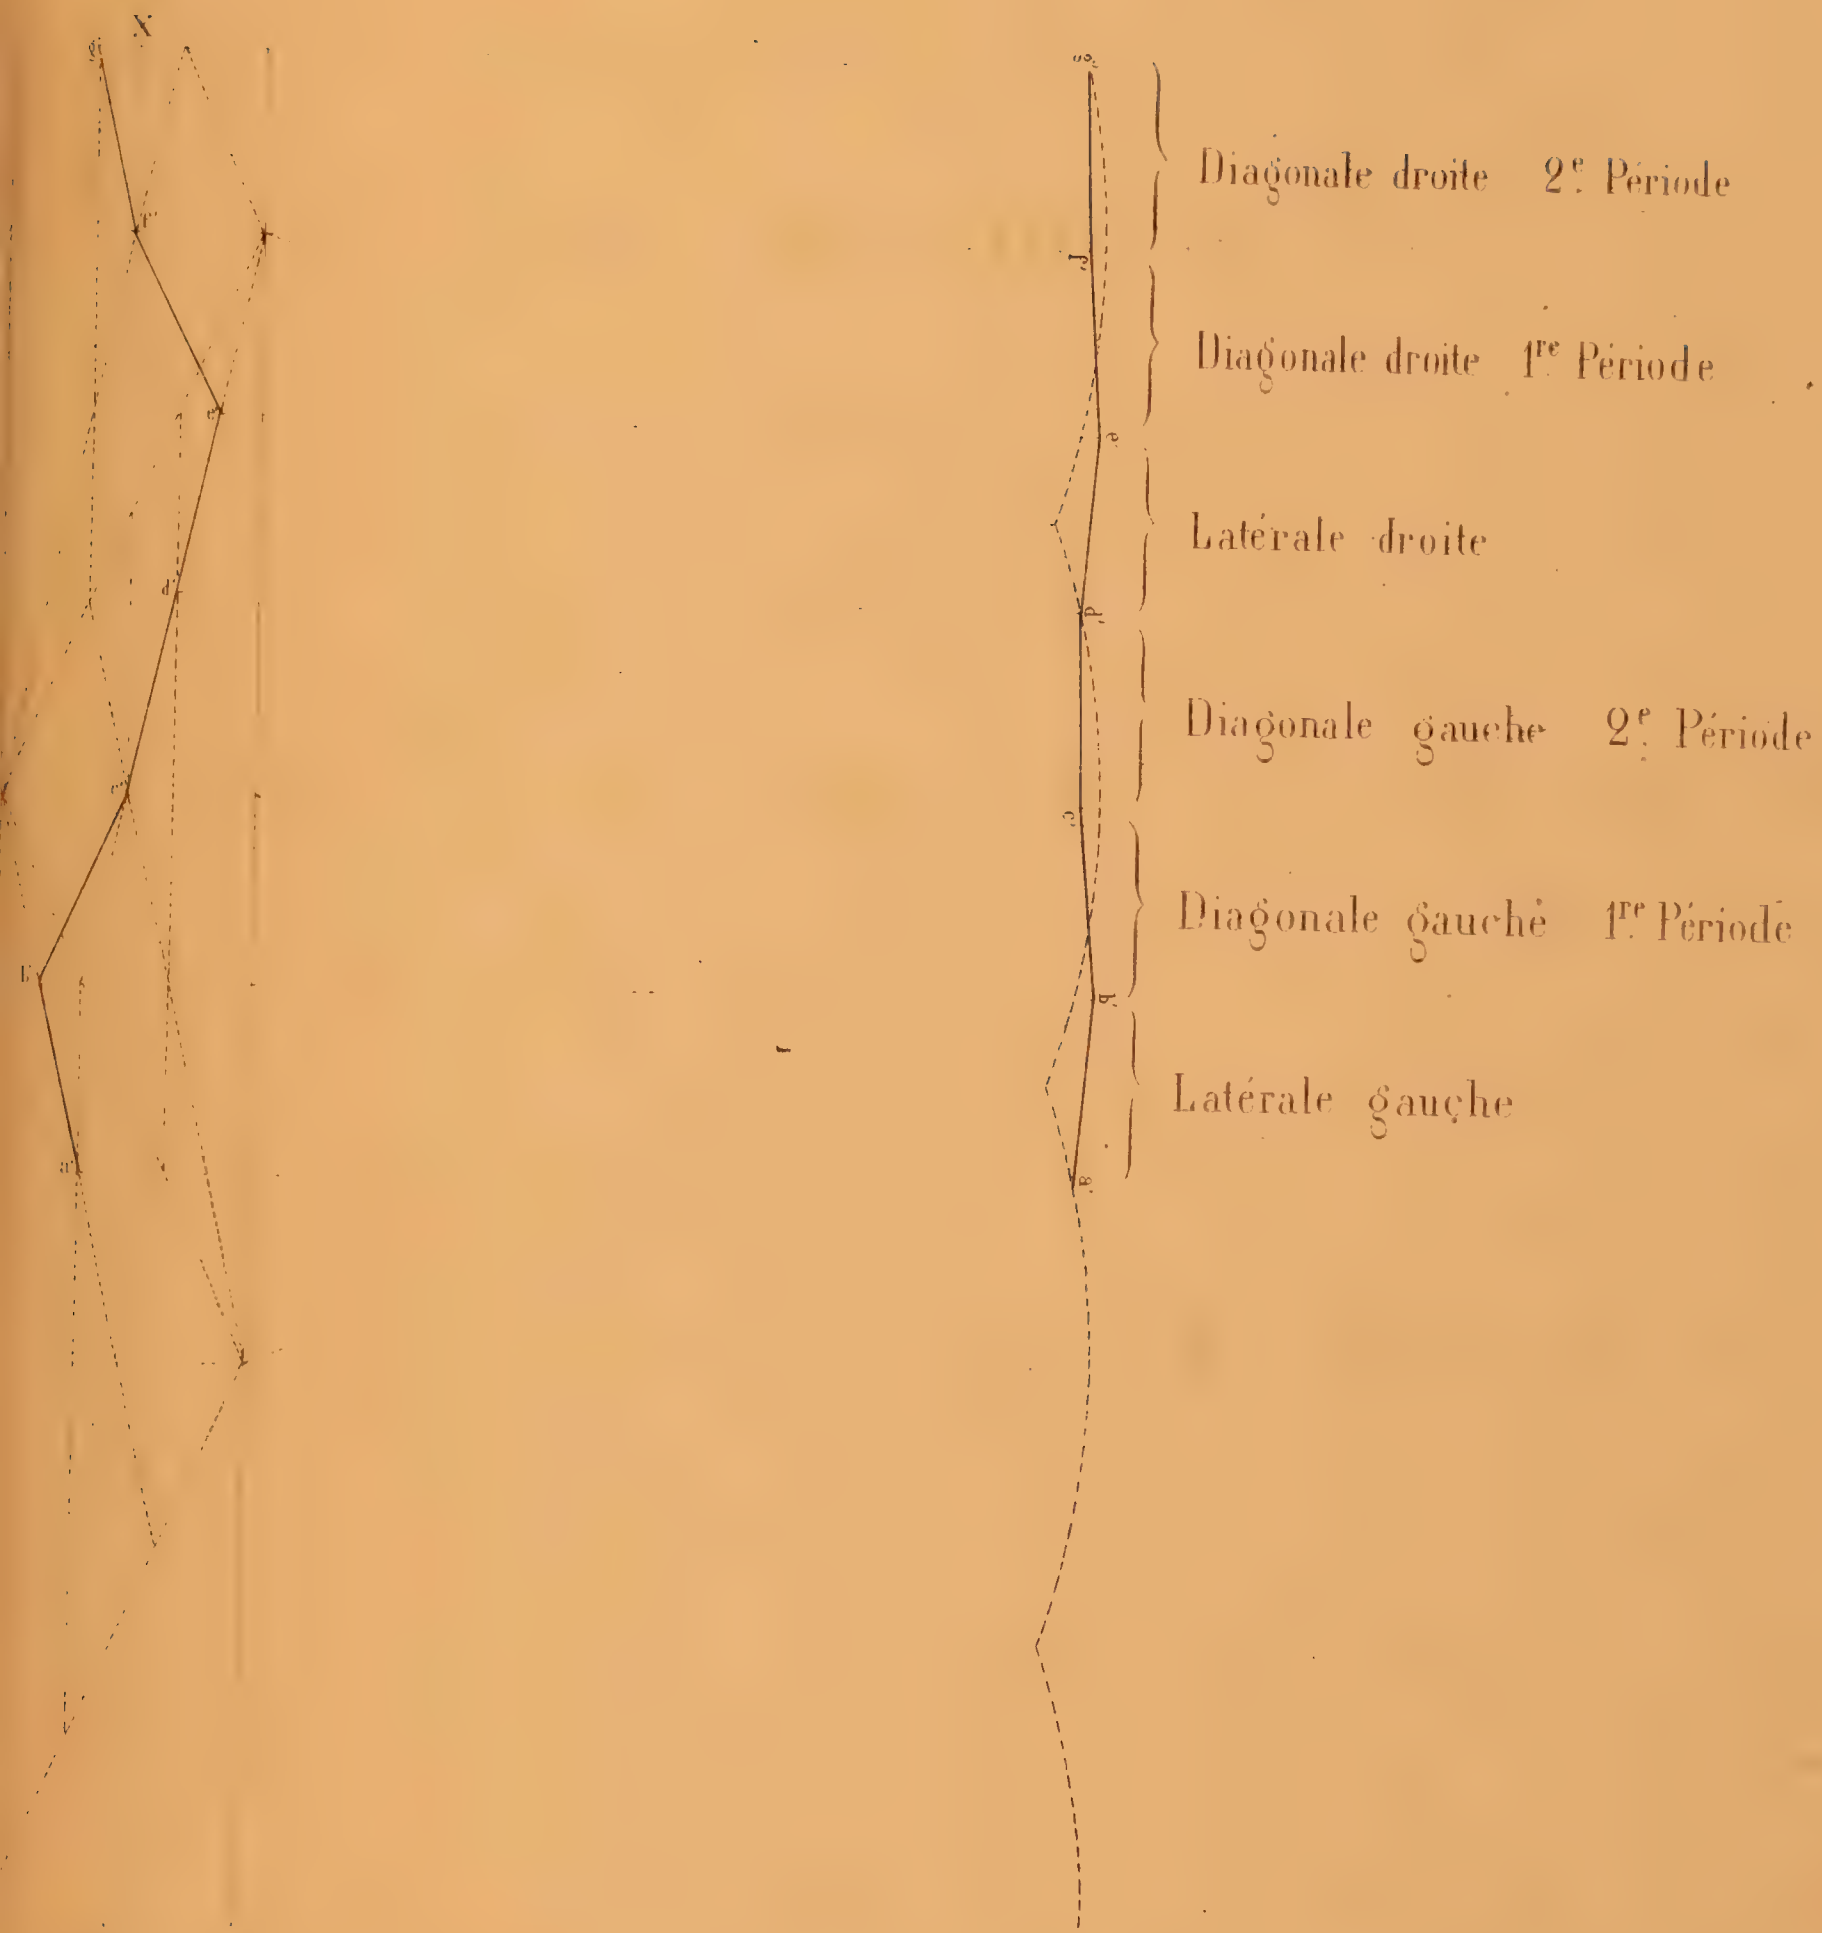 X
g'
f'
e'
d'
b'
a'
g'
f'
Diagonale droite 2e. Période
Diagonale droite 1re. Période
e'
Latérale droite
d'
Diagonale gauche 2e. Période
c'
Diagonale gauche 1re. Période
b'
Latérale gauche
a'